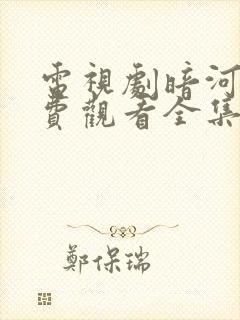 電視劇暗河
費觀看全集
鄭保瑞